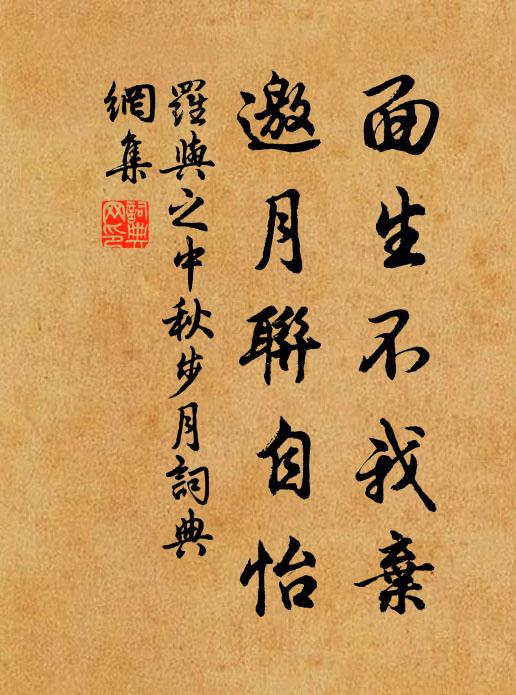 面生不我棄
邀月聯自怡
羅與之中秋步月詞典
網集
詞典網印